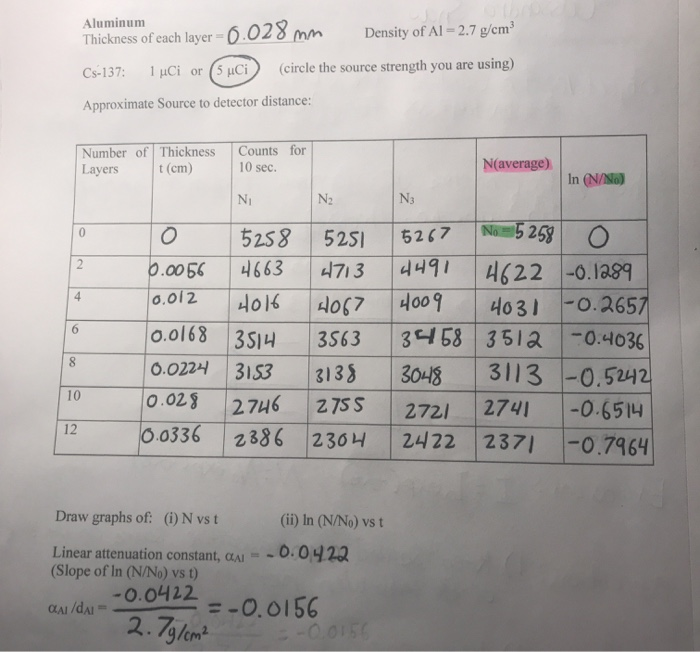 Aluminum
Thickness of each layer = 0.028 mm Density of Al = 2.7 g/cm³
Cs-137: 1 µCi or 5 µCi (circle the source strength you are using)
Approximate Source to detector distance:
Number of Layers Thickness t (cm) Counts for 10 sec. N(average) ln (N/N₀)
N₁ N₂ N₃
0 0 5258 5251 5267 N₀ = 5258 0
2 0.0056 4663 4713 4491 4622 -0.1289
4 0.012 4016 4067 4009 4031 -0.2657
6 0.0168 3514 3563 3458 3512 -0.4036
8 0.0224 3153 3138 3048 3113 -0.5242
10 0.028 2746 2755 2721 2741 -0.6514
12 0.0336 2386 2304 2422 2371 -0.7964
Draw graphs of: (i) N vs t (ii) ln (N/N₀) vs t
Linear attenuation constant, αAl = -0.0422
(Slope of ln (N/N₀) vs t)
αAl /dAl = -0.0422 / 2.7g/cm² = -0.0156
= -0.0156